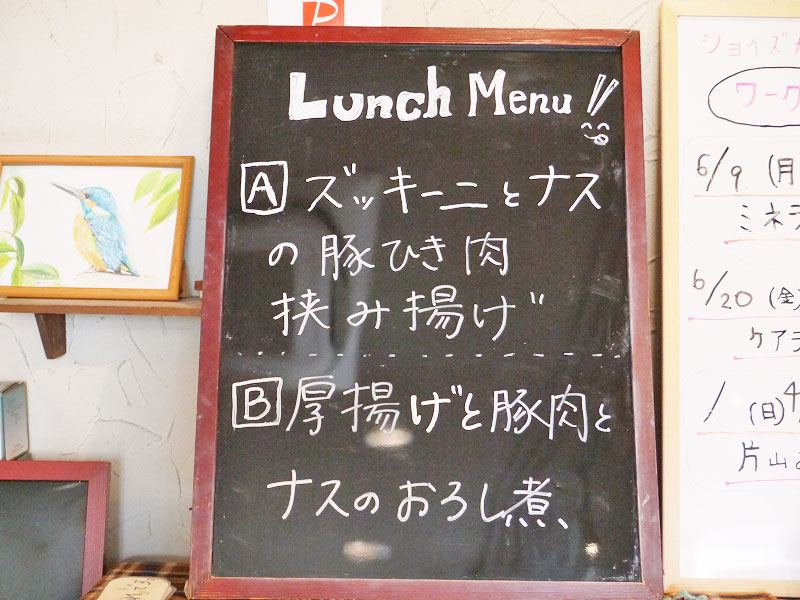 P
Lunch Menu!!
A ズッキーニとナス
の豚ひき肉
挟み揚げ
B 厚揚げと豚肉と
ナスのおろし煮、
ショイズ
ワーク
6/9 (月
ミネラ
6/20 (金)
ケアラ
/ (日) 4
片山